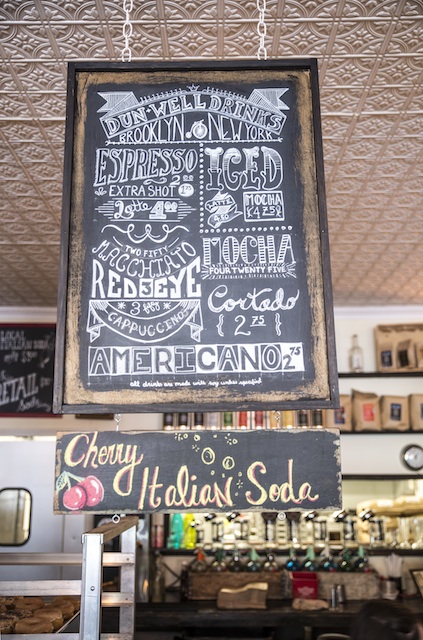 DUN-WELL DRINKS
BROOKLYN NEW YORK
ESPRESSO
2.00
EXTRA SHOT
Latte 4.00
ICED
LATTE
4.50
MOCHA
4.75
TWO FIFTY
MACCHIATO
REDEYE
3
CAPPUCCINO
MOCHA
FOUR TWENTY FIVE
Cortado
{2.75}
AMERICANO 2.75
all drinks are made with soy unless specified
Cherry
Italian Soda
LOCAL
RETAIL